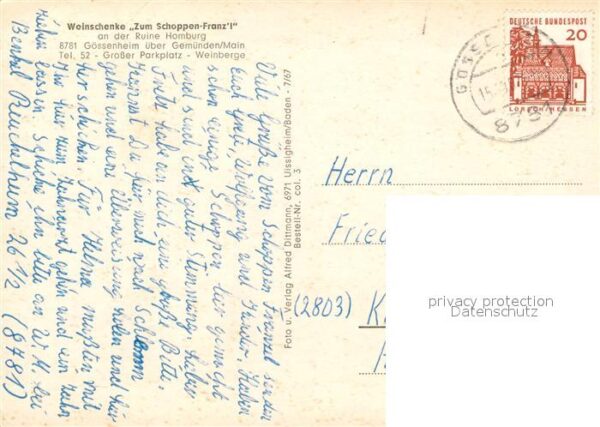 Weinschenke „Zum Schoppen-Franz'l"
an der Ruine Homburg
8781 Gössenheim über Gemünden/Main
Tel. 52 - Großer Parkplatz - Weinberge
DEUTSCHE BUNDESPOST
20
LORSCH/HESSEN
15.
878
Viele Grüße vom Schoppen Franzel senden
Euch Wolfgang und Haben
schon einige Schoppen hier gemacht
und sind in guter Stimmung. Lieber
Fritz habe an dich eine große Bitte.
Kannst Du für mich nach
gehen und eine Überweisung holen und hier
her schicken. Für Helma müßten wir
hier zum Zahnarzt gehn und ein Zahn
ziehen lassen. Schicke ihn bitte an W. H. bei
26 1/2 (8781)
Foto u. Verlag Alfred Dittmann, 6971 Uissigheim/Baden - 7/67
Bestell-Nr. col. 3
Herrn
Fried
(2803) K
privacy protection
Datenschutz